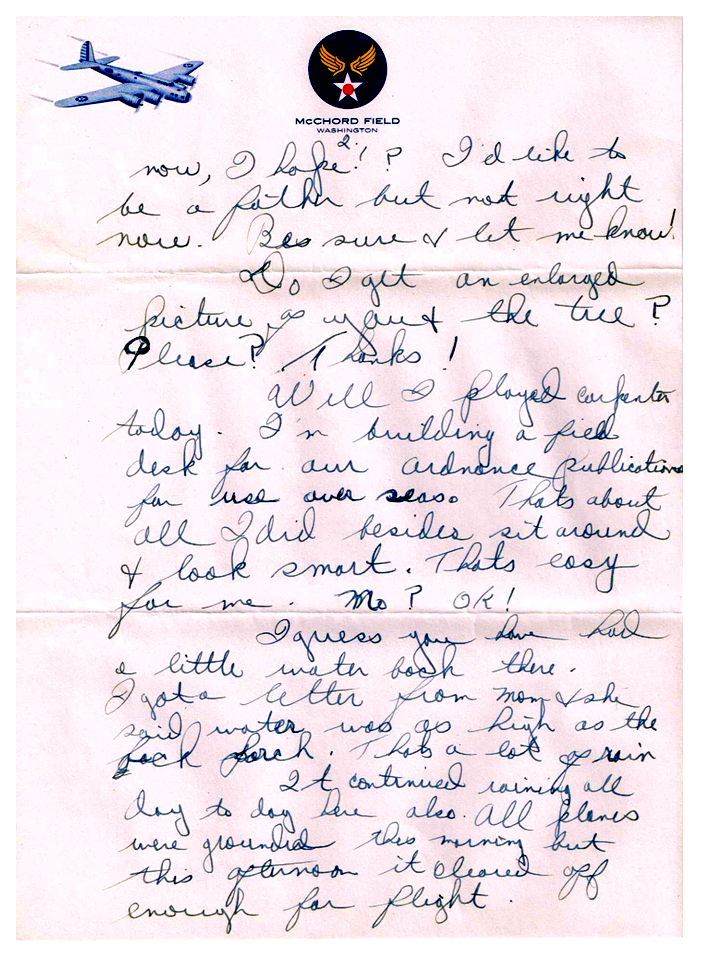 McCHORD FIELD
WASHINGTON
2
now, I hope!? I'd like to
be a father but not right
now. Bes sure & let me know!
Do I get an enlarged
picture of you & the tree?
Please? Thanks!
Well I played carpenter
today. I'm building a field
desk for our ordnance publications
for use over seas. Thats about
all I did besides sit around
& look smart. Thats easy
for me. No? OK!
I guess you have had
a little water back there.
I got a letter from Mom & she
said water was as high as the
back porch. Thats a lot of rain
It continued raining all
day to day here also. All planes
were grounded this morning but
this afternoon it cleared off
enough for flight.